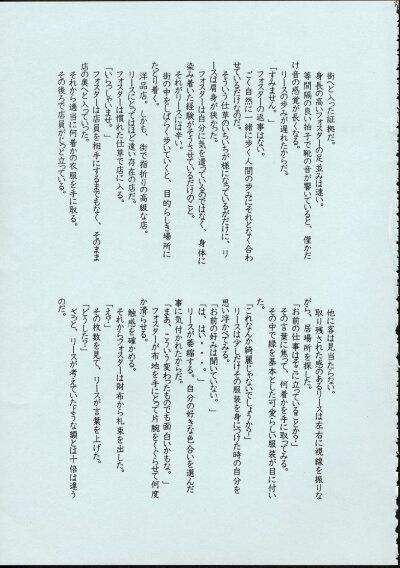 街へと入った証拠だ。
身長の高いフォスターの足並みは速い。
等間隔の良い拍子で靴の音が響いていると、僅かだ
け音の感覚が長くなる。
リースの歩みが遅れたからだ。
「すみません。」
フォスターの返事はない。
ごく自然に一緒に歩く人間の歩みにそれとなく合わ
せているだけなのだ。
そういう仕草のいちいちが様になっているがだけに、リ
ースは肩身が狭かった。
フォスターは自分に気を遣っているのではなく、身体に
染み着いた経験がそうさせているだけのこと。
それがリースには辛い。
街の中をしばらく歩いていくと、目的らしき場所に
たどり着く。
洋品店。しかも、街で指折りの高級な店。
リースにとってはほど遠い存在の店だ。
フォスターは慣れた仕草で店に入る。
「いらっしゃいませ。」
フォスターは店員を相手にするまでもなく、そのまま
店の奥へと入っていった。
それから適当に何着かの衣服を手に取る。
その後ろで店員がじっと立っている。
他に客は見当たらない。
取り残された感のあるリースは左右に視線を振りな
がら、居場所を探した。
「お前の仕事はそこに立っていることか？」
その言葉に焦って、何着かを手に取ってみる。
その中で緑を基本とした可愛らしい服装が目に付い
た。
「これなんか綺麗じゃないでしょうか？」
リースは少しだけその服装を身につけた時の自分を
思い浮かべてみる。
「お前の好みは聞いていない。」
「は、はい・・・・。」
リースが萎縮する。自分の好きな色合いを選んだ
事に気付かれたからだ。
「まああ、こういう変わったものでも面白いかもな。」
フォスターが布地を手にとって片腕をくぐらせて何度
か滑らせる。
触感を確かめる。
それからフォスターは財布から札束を出した。
「え？」
その枚数を見て、リースが言葉を上げた。
「どうした？」
ざっと、リースが考えていたような額とは十倍は違う
のだ。